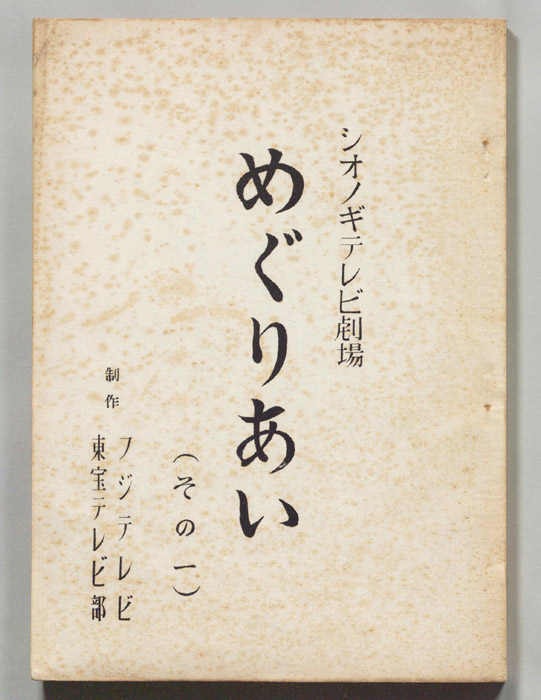 シオノギテレビ劇場
めぐりあい
(その一)
制作
フジテレビ
東宝テレビ部